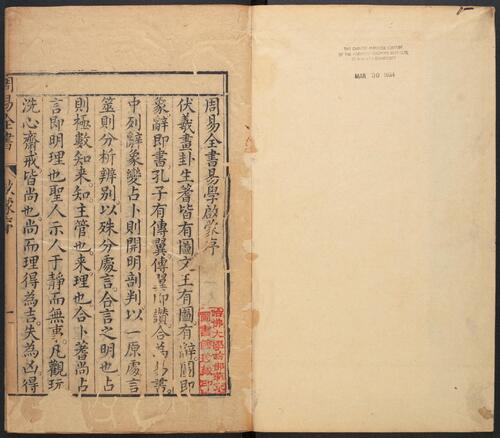 周易全書易學啟蒙序
伏羲畫卦生蓍皆有圖文王有圖有辭圖即
彖辭即書孔子有傳翼傳翼即讚合為
中列辭象變占卜則開明剖判以一原處言
筮則分析辨別以殊分處言合言之明也占
則極數知來知主管也來理也合卜蓍尚占
言即明理也聖人示人于靜而無事凡觀玩
洗心齋戒皆尚也尚而理得為吉失為凶得
周易全書
啟蒙序
一
THE CHINESE-JAPANESE LIBRARY
OF THE HARVARD-YENCHING INSTITUTE
AT HARVARD UNIVERSITY
MAR 30 1934
哈佛大學哈佛燕京
圖書館珍藏印